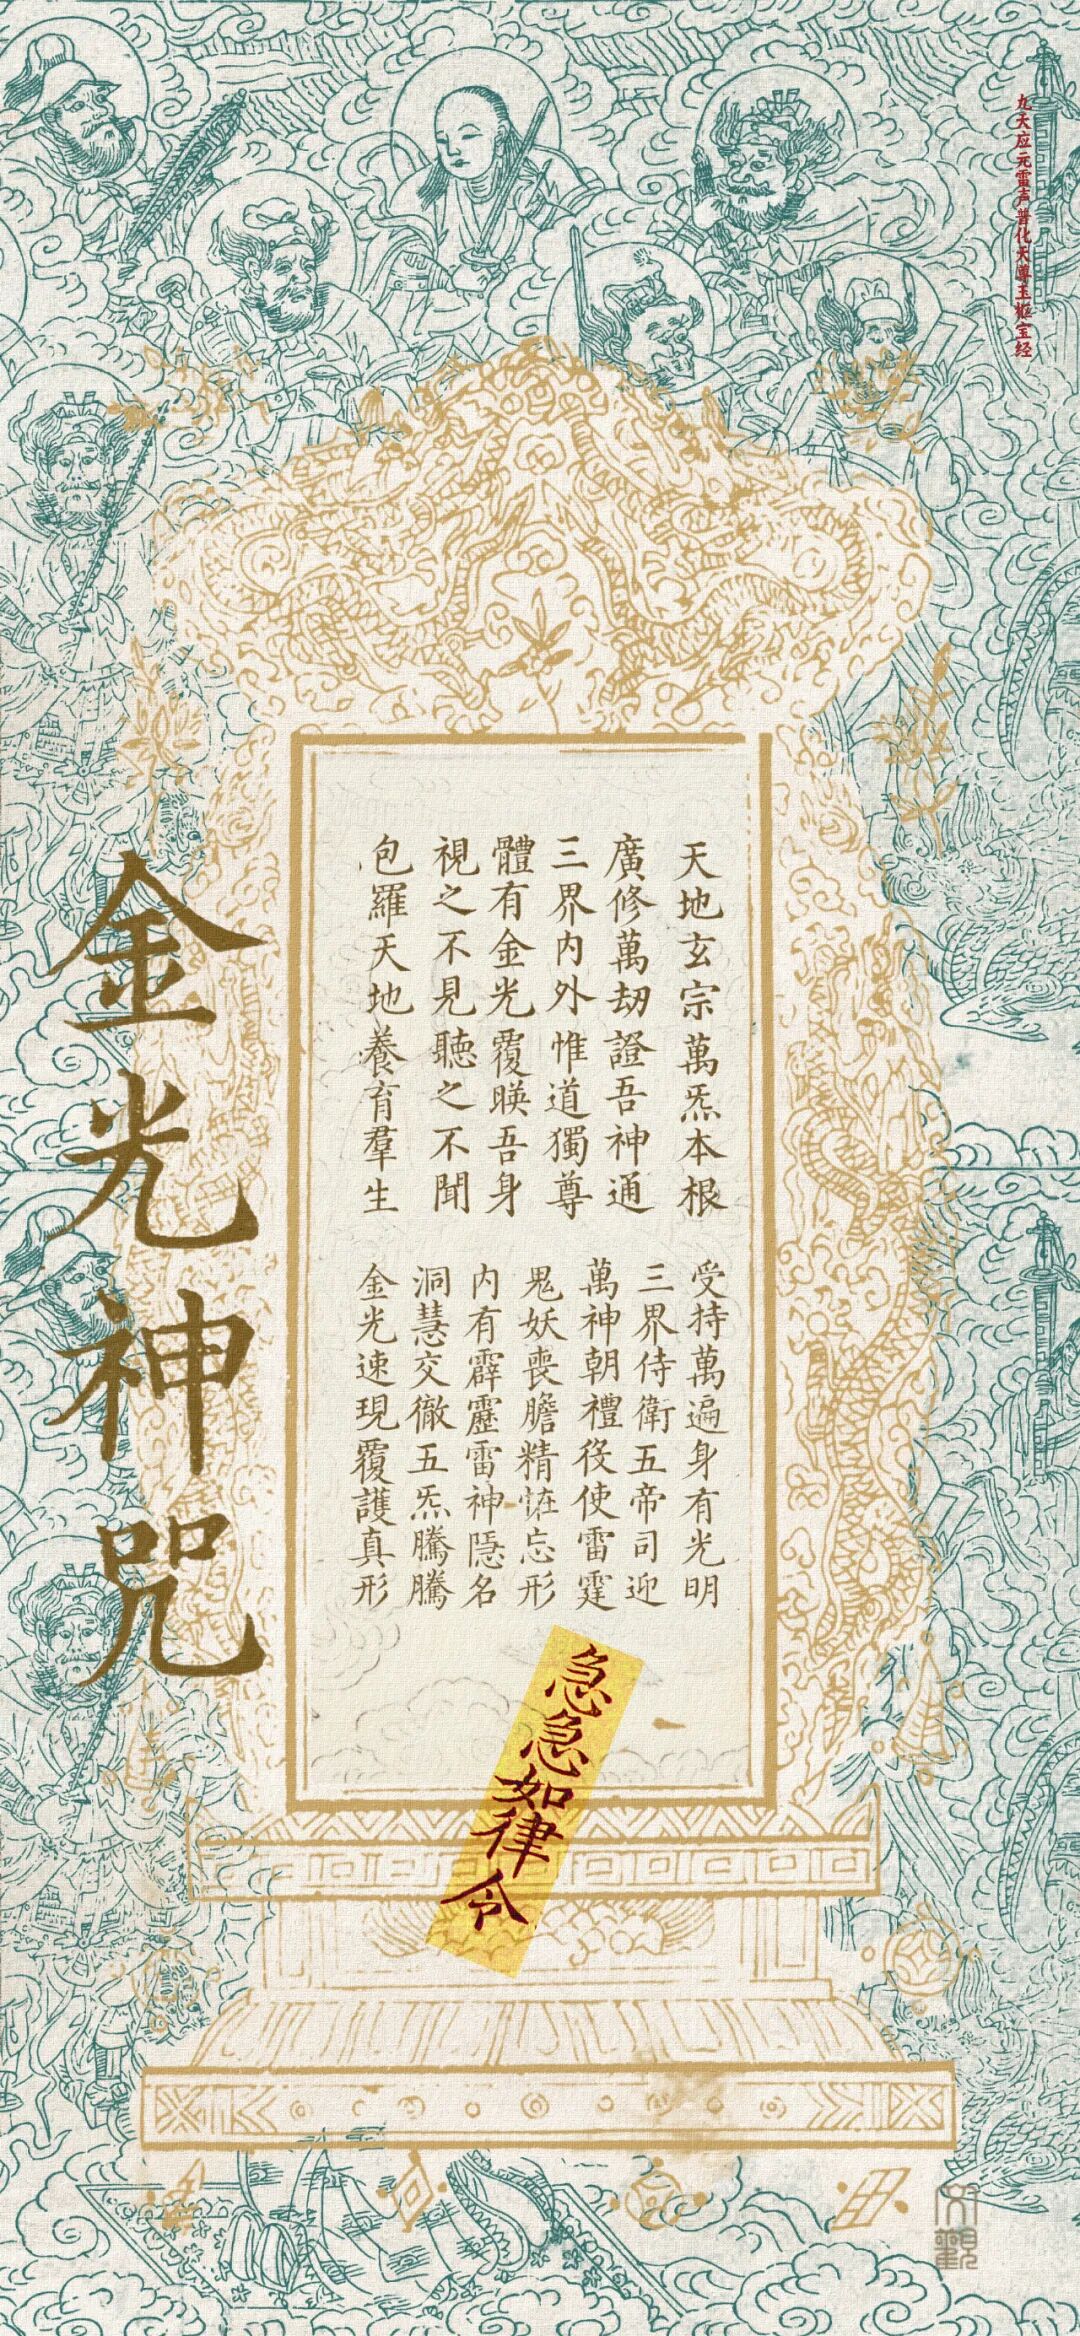 九天应元雷声普化天尊玉枢宝经
天地玄宗萬炁本根
廣修萬劫證吾神通
三界内外惟道獨尊
體有金光覆暎吾身
視之不見聽之不聞
包羅天地養育羣生
受持萬遍身有光明
三界侍衛五帝司迎
萬神朝禮役使雷霆
鬼妖喪膽精恠忘形
内有霹靂雷神隱名
洞慧交徹五炁騰騰
金光速現覆護真形
急急如律令
金光神咒